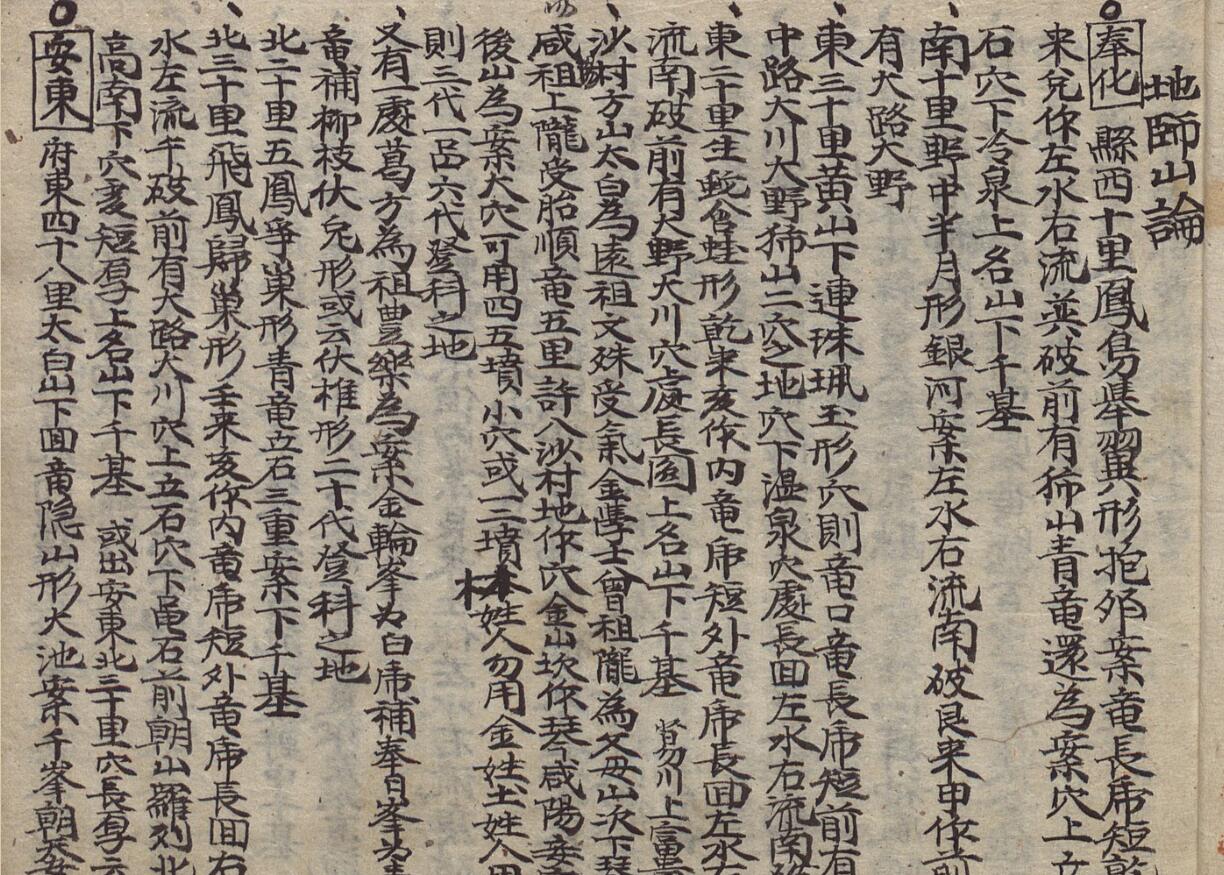 地師山論
奉化 縣西十里鳳島舉翼形抱夘案竜長席短乾
来兌作左水右流巽破前有狮山青竜還為案穴上立
石穴下冷泉上名山下千基
南十里野中半月形銀河案左水右流南破艮来申作前
有大路大野
東三十里黄山下連珠珮玉形穴則竜口竜長席短前有
中路大川大野狮山二穴之地穴下温泉穴處長囬左水右流南破
東二十里生蛇含蛙形乾来亥作内竜席短外竜席長囬左水右
流南破前有大野大川穴處長囬上名山下千基 川上
沙村方山太白為遠祖文殊受氣金學士曾祖隴為父母山次下琴
咸祖上隴受胎順竜五里許八沙村地作穴金山坎作琴咸陽案
後山為案大穴可用四五墳小穴或一二墳林姓人勿用金姓土姓人用
則三代一品六代登科之地
又有一處葛方為祖豊樂為案金輪峯为白席補奉日峯为主
竜補柳枝伏兔形或云伏椎形二十代登科之地
北二十里五鳳爭巢形青竜立石三重案下千基
北三十里飛鳳歸巢形壬来亥作内竜席短外竜席長囬右
水左流千破前有大路大川穴上五石穴下黽石前朝山羅列北
高南下穴処短厚上名山下千基 或出安東北三十里穴長厚云
安東 府東四十八里太白山下囬竜隐山形大池案千峯朝案